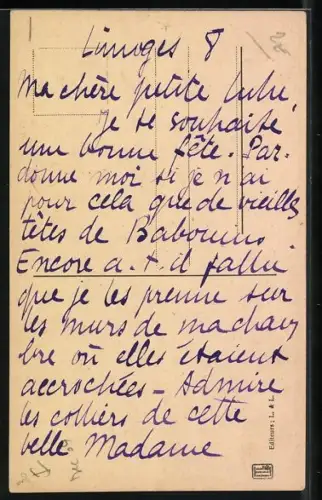 Limoges 8
Ma chère petite Lulu,
Je te souhaite
une bonne fête. Par-
donne moi si je n'ai
pour cela que de vieilles
têtes de Babouins
Encore a-t-il fallu
que je les prenne sur
les murs de ma cham
bre où elles étaient
accrochées - Admire
les colliers de cette
belle Madame
Editeurs: L. & L.